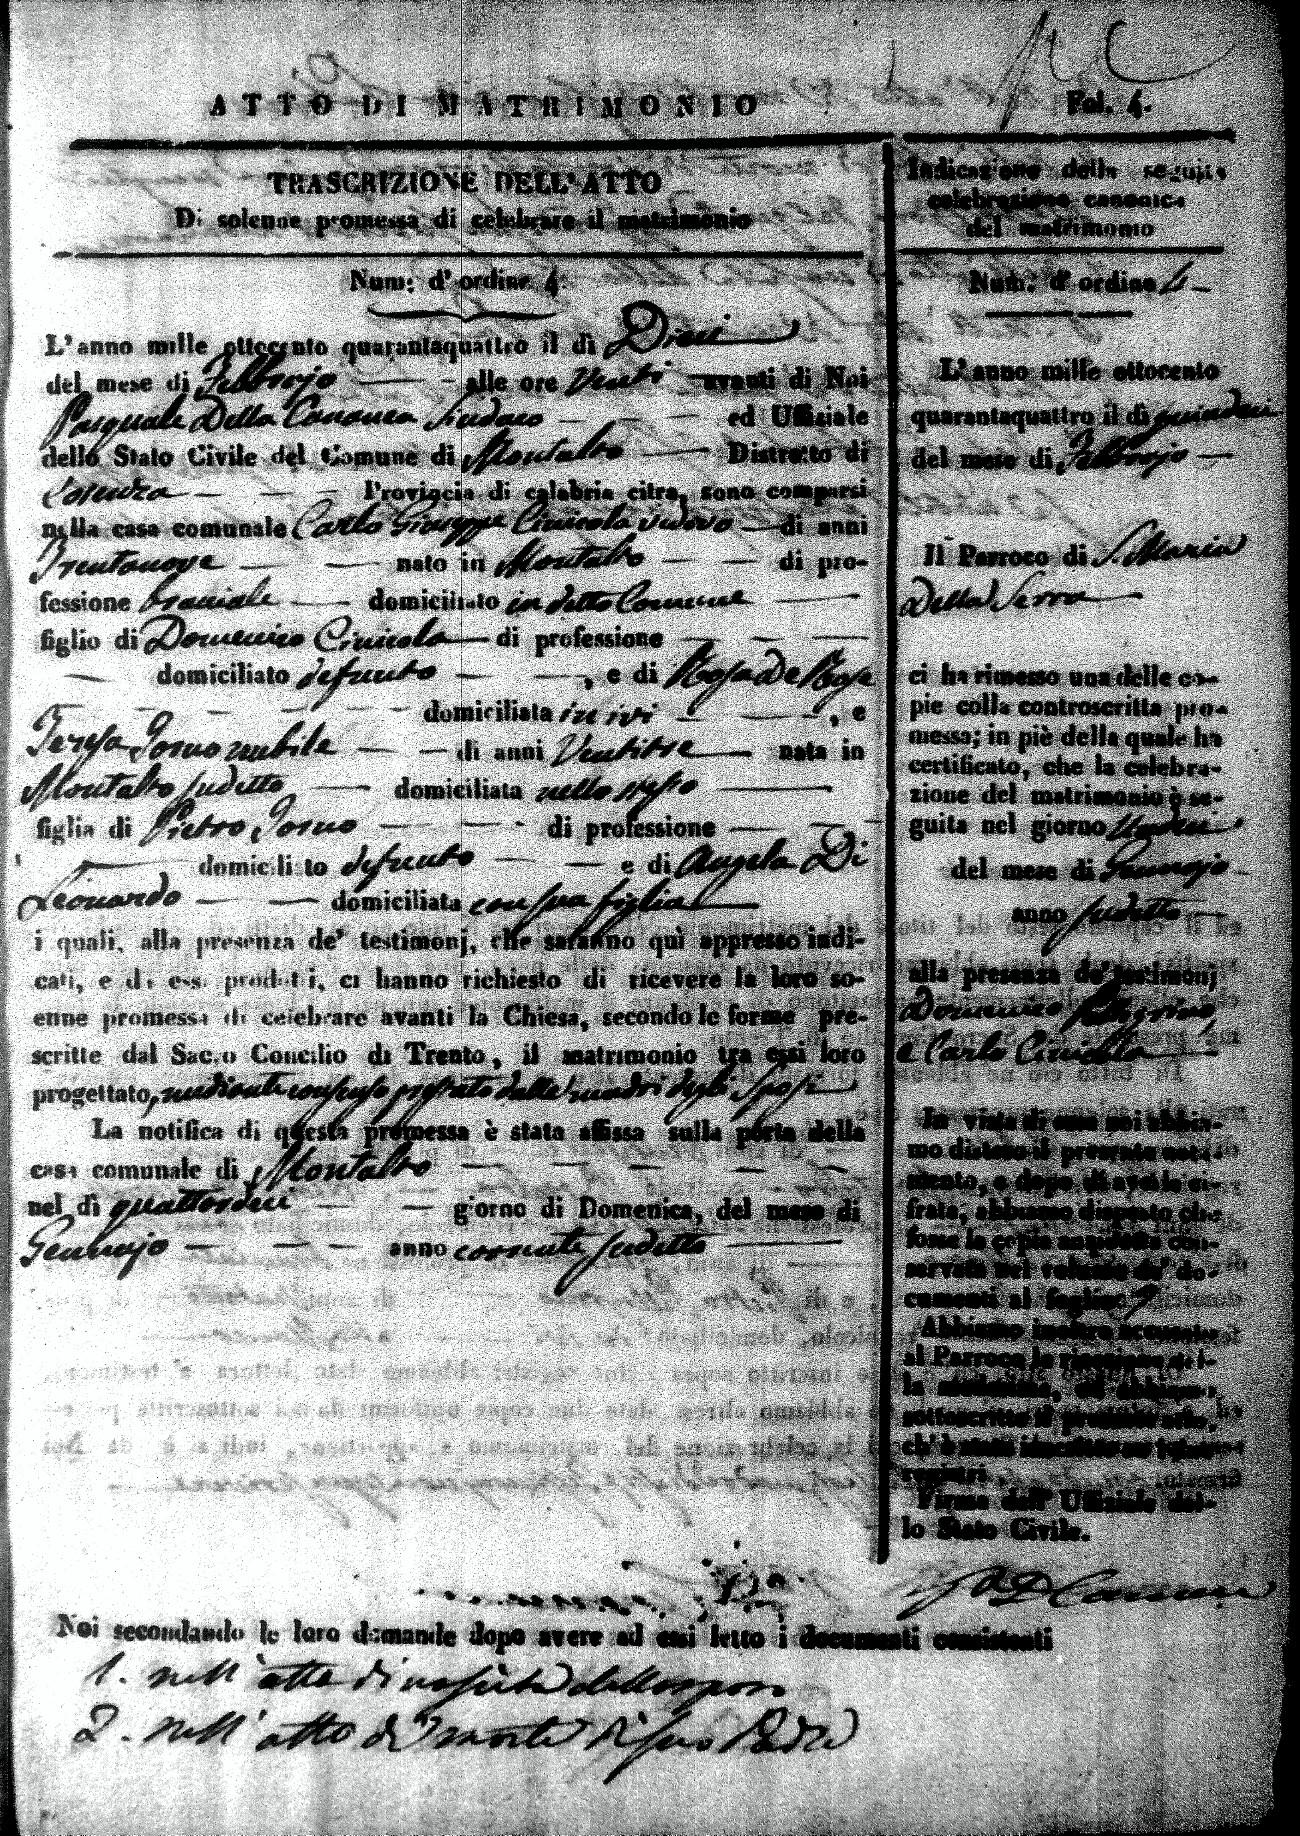 ATTO DI MATRIMONIO
Fol. 4.
TRASCRIZIONE DELL'ATTO
Di solenne promessa di celebrare il matrimonio
Num: d'ordine 4
L'anno mille ottocento quarantaquattro il dì Dieci
del mese di Febbrajo — alle ore Venti avanti di Noi
Pasquale Della Cananea Sindaco — ed Uffiziale
dello Stato Civile del Comune di Montalto — Distretto di
Cosenza — Provincia di calabria citra, sono comparsi
nella casa comunale Carlo Giuseppe Cinicola vedovo — di anni
Trentanove — nato in Montalto — di pro-
fessione bracciale — domiciliato in detto Comune —
figlio di Domenico Cinicola — di professione —
— domiciliato defunto — , e di Rosa De Rose
— domiciliata in ivi — , e
Teresa nubile — di anni Ventitre — nata in
Montalto sudetto — domiciliata nello stesso —
figlia di Pietro — di professione —
— domiciliato defunto — e di Angela Di
Leonardo — domiciliata con sua figlia —
i quali, alla presenza de' testimonj, che saranno quì appresso indi-
cati, e da essi prodotti, ci hanno richiesto di ricevere la loro so-
enne promessa di celebrare avanti la Chiesa, secondo le forme pre-
scritte dal Sacro Concilio di Trento, il matrimonio tra essi loro
progettato, mediante consenso prestato dalle madri degli Sposi
La notifica di questa promessa è stata affissa sulla porta della
casa comunale di Montalto —
nel dì quattordici — giorno di Domenica, del mese di
Gennajo — anno corrente sudetto —
Indicazione della seguita
celebrazione canonica
del matrimonio
Num: d'ordine 4 —
L'anno mille ottocento
quarantaquattro il dì quindici
del mese di Febbrajo —
Il Parroco di S. Maria
Della Serra —
ci ha rimesso una delle co-
pie colla controscritta pro-
messa; in piè della quale ha
certificato, che la celebra-
zione del matrimonio è se-
guita nel giorno
del mese di Gennajo
anno sudetto —
alla presenza de' testimonj
Domenico
e Carlo
In vista di essa noi abbia-
mo disteso il presente
mento, e dopo di averla ci-
frata, abbiamo disposto che
fosse la copia anzidetta con-
servata nel volume de' do-
cumenti al foglio 7
Abbiamo inoltre accusato
al Parroco la ricezione del-
la medesima, ed abbiamo
sottoscritto il presente atto,
ch'è stato inscritto su i due
registri
Firma dell'Uffiziale del-
lo Stato Civile.
Noi secondando le loro domande dopo avere ad essi letto i documenti consistenti
1. nell'atto di nascita dello sposo
2. nell'atto di morte di suo Padre